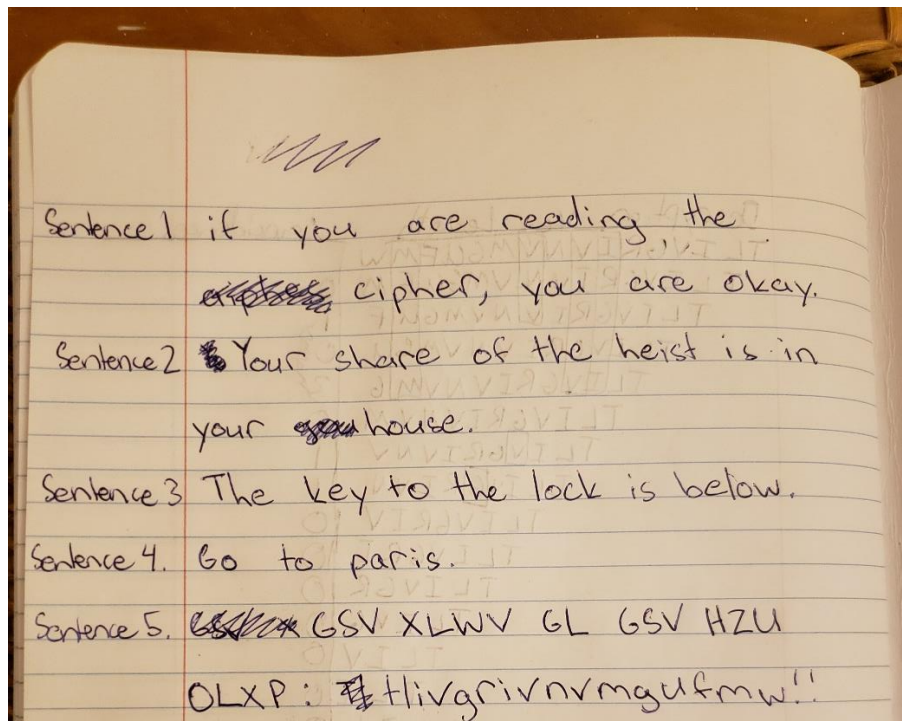 Sentence 1 if you are reading the
cipher, you are okay.
Sentence 2 Your share of the heist is in
your house.
Sentence 3 The key to the lock is below.
Sentence 4. Go to paris.
Sentence 5. GSV XLWV GL GSV HZU
OLXP: tlivgrivnvmgufmw!!